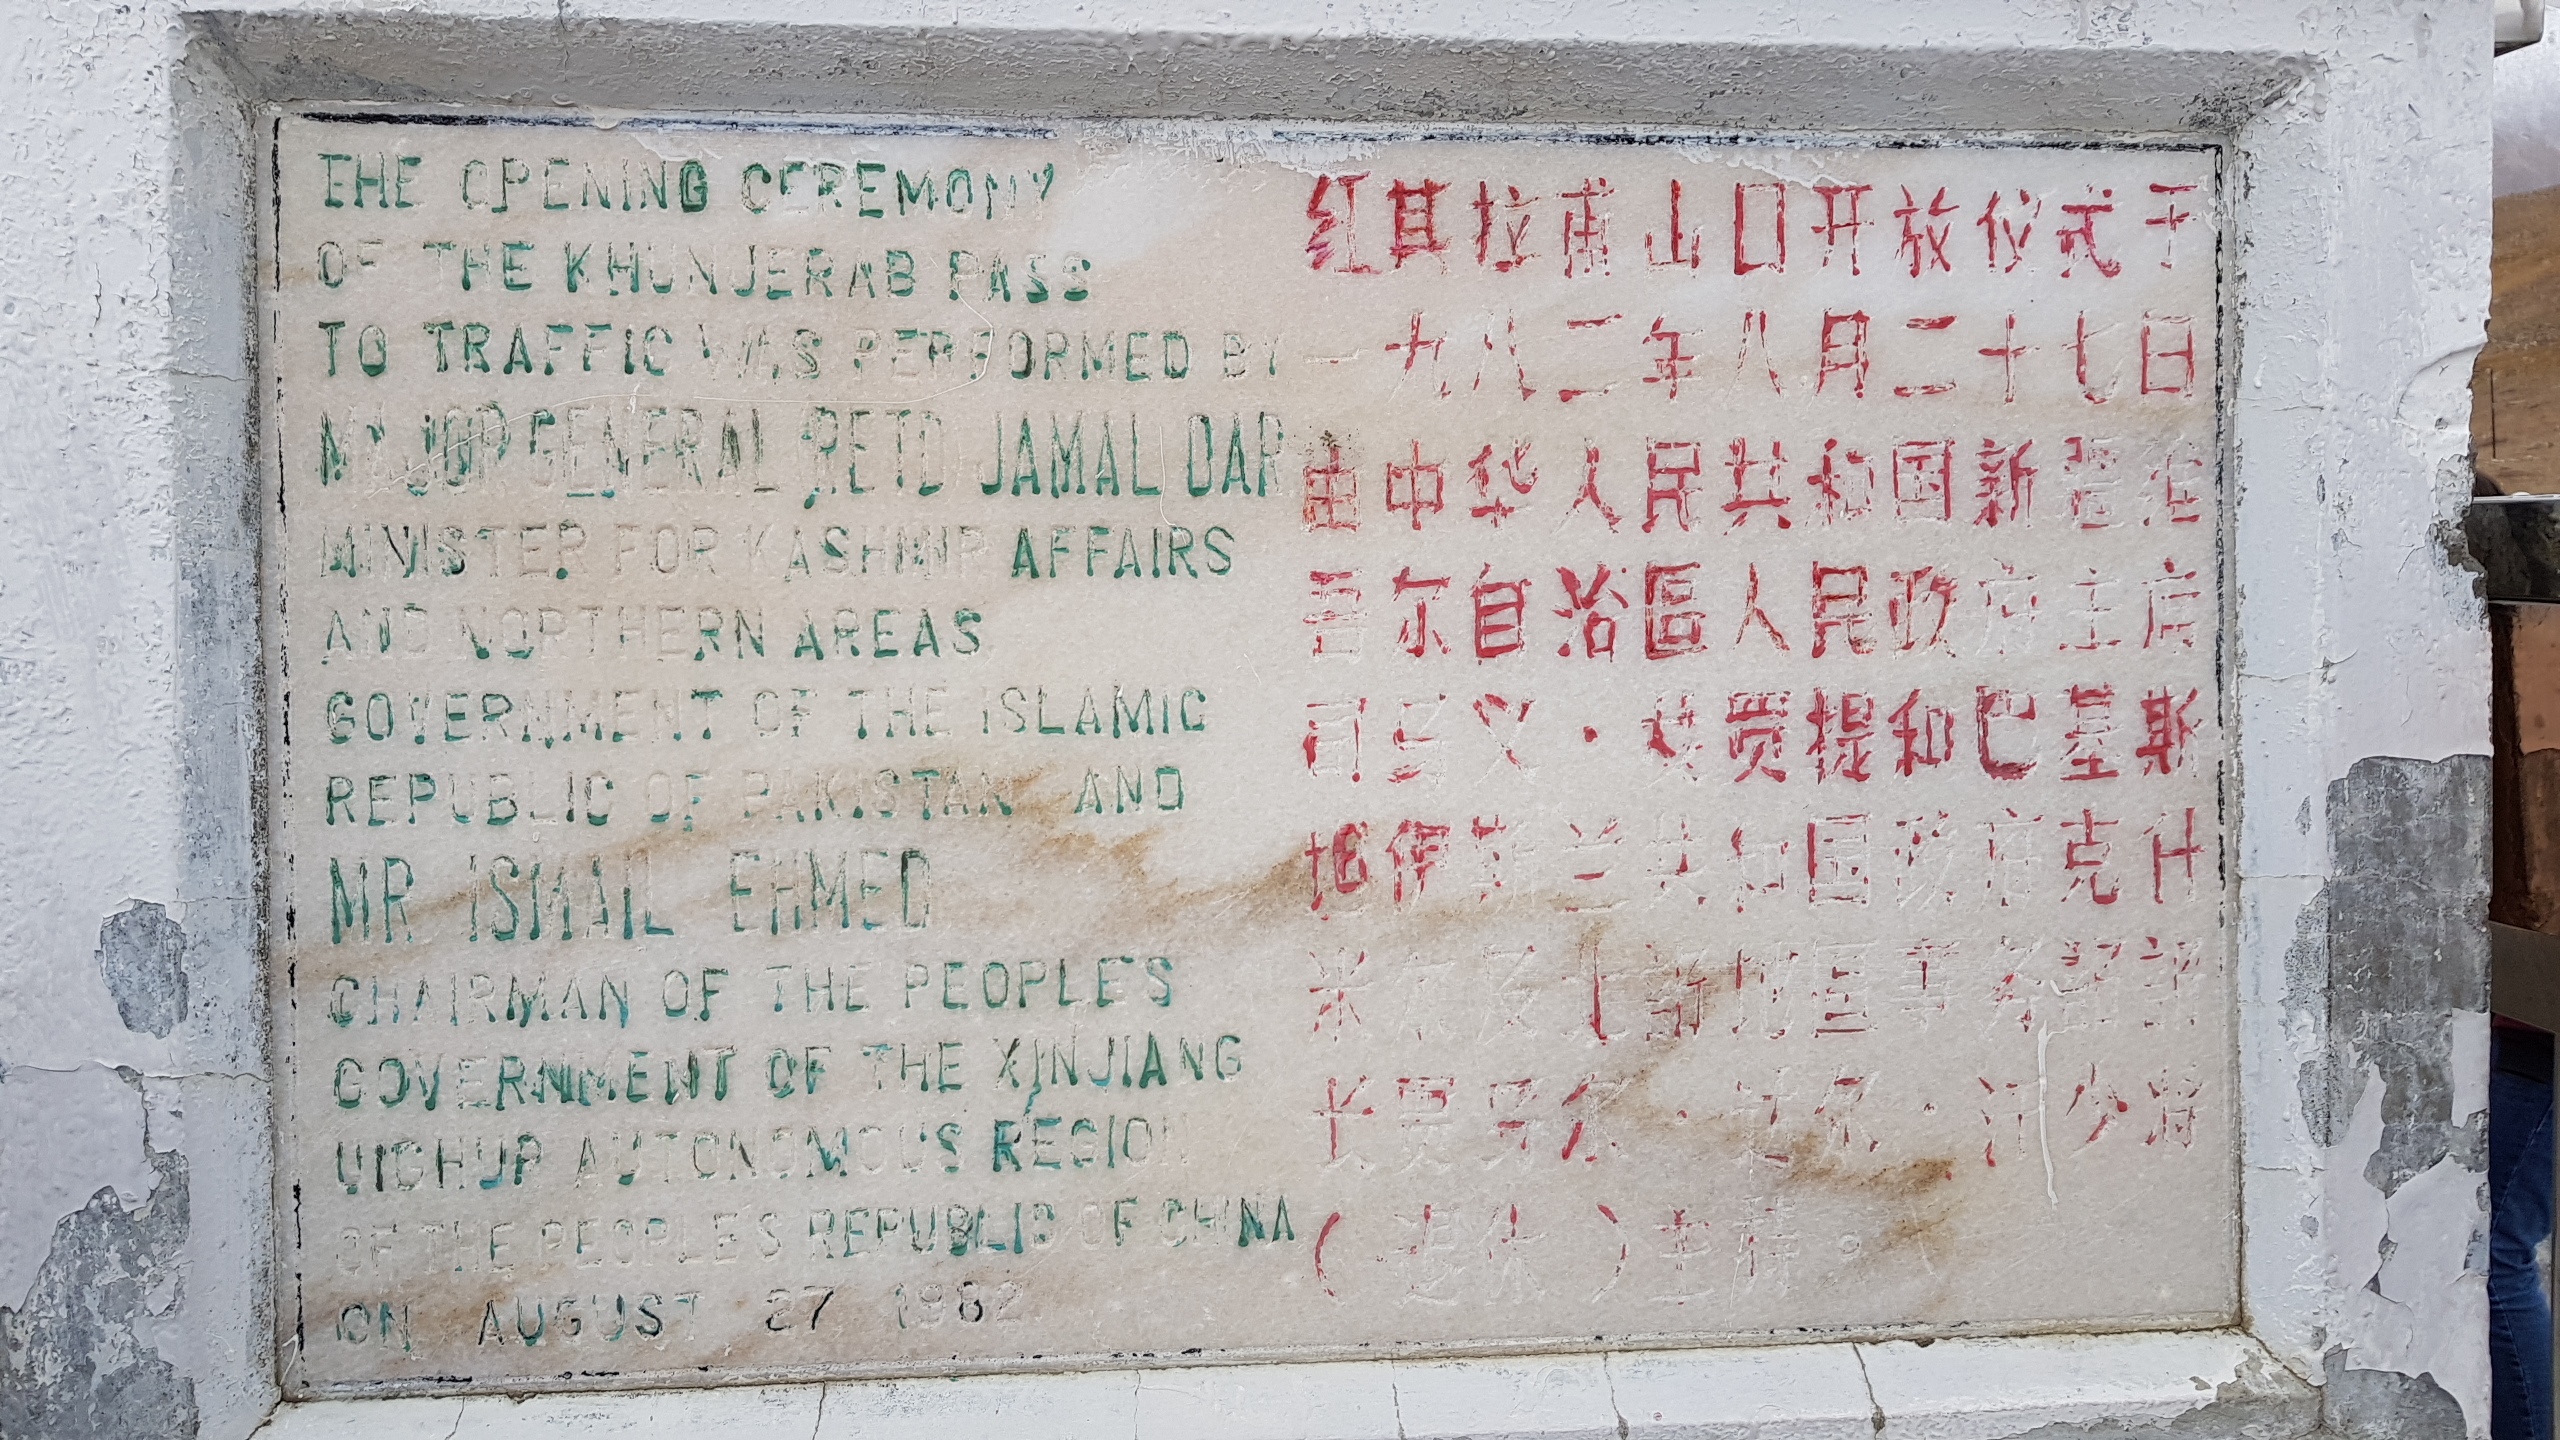 THE OPENING CEREMONY
OF THE KHUNJERAB PASS
TO TRAFFIC WAS PERFORMED BY
MAJOR GENERAL RETD JAMAL DAR
MINISTER FOR KASHMIR AFFAIRS
AND NORTHERN AREAS
GOVERNMENT OF THE ISLAMIC
REPUBLIC OF PAKISTAN AND
MR ISMAIL EHMED
CHAIRMAN OF THE PEOPLE'S
GOVERNMENT OF THE XINJIANG
UIGHUR AUTONOMOUS REGION
OF THE PEOPLE'S REPUBLIC OF CHINA
ON AUGUST 27 1982
红其拉甫山口开放仪式于
一九八二年八月二十七日
由中华人民共和国新疆维
吾尔自治區人民政府主席
司马义·艾买提和巴基斯
坦伊斯兰共和国政府克什
米尔及北部地区事务部部
长贾马尔·达尔·汗少将
（退休）主持。